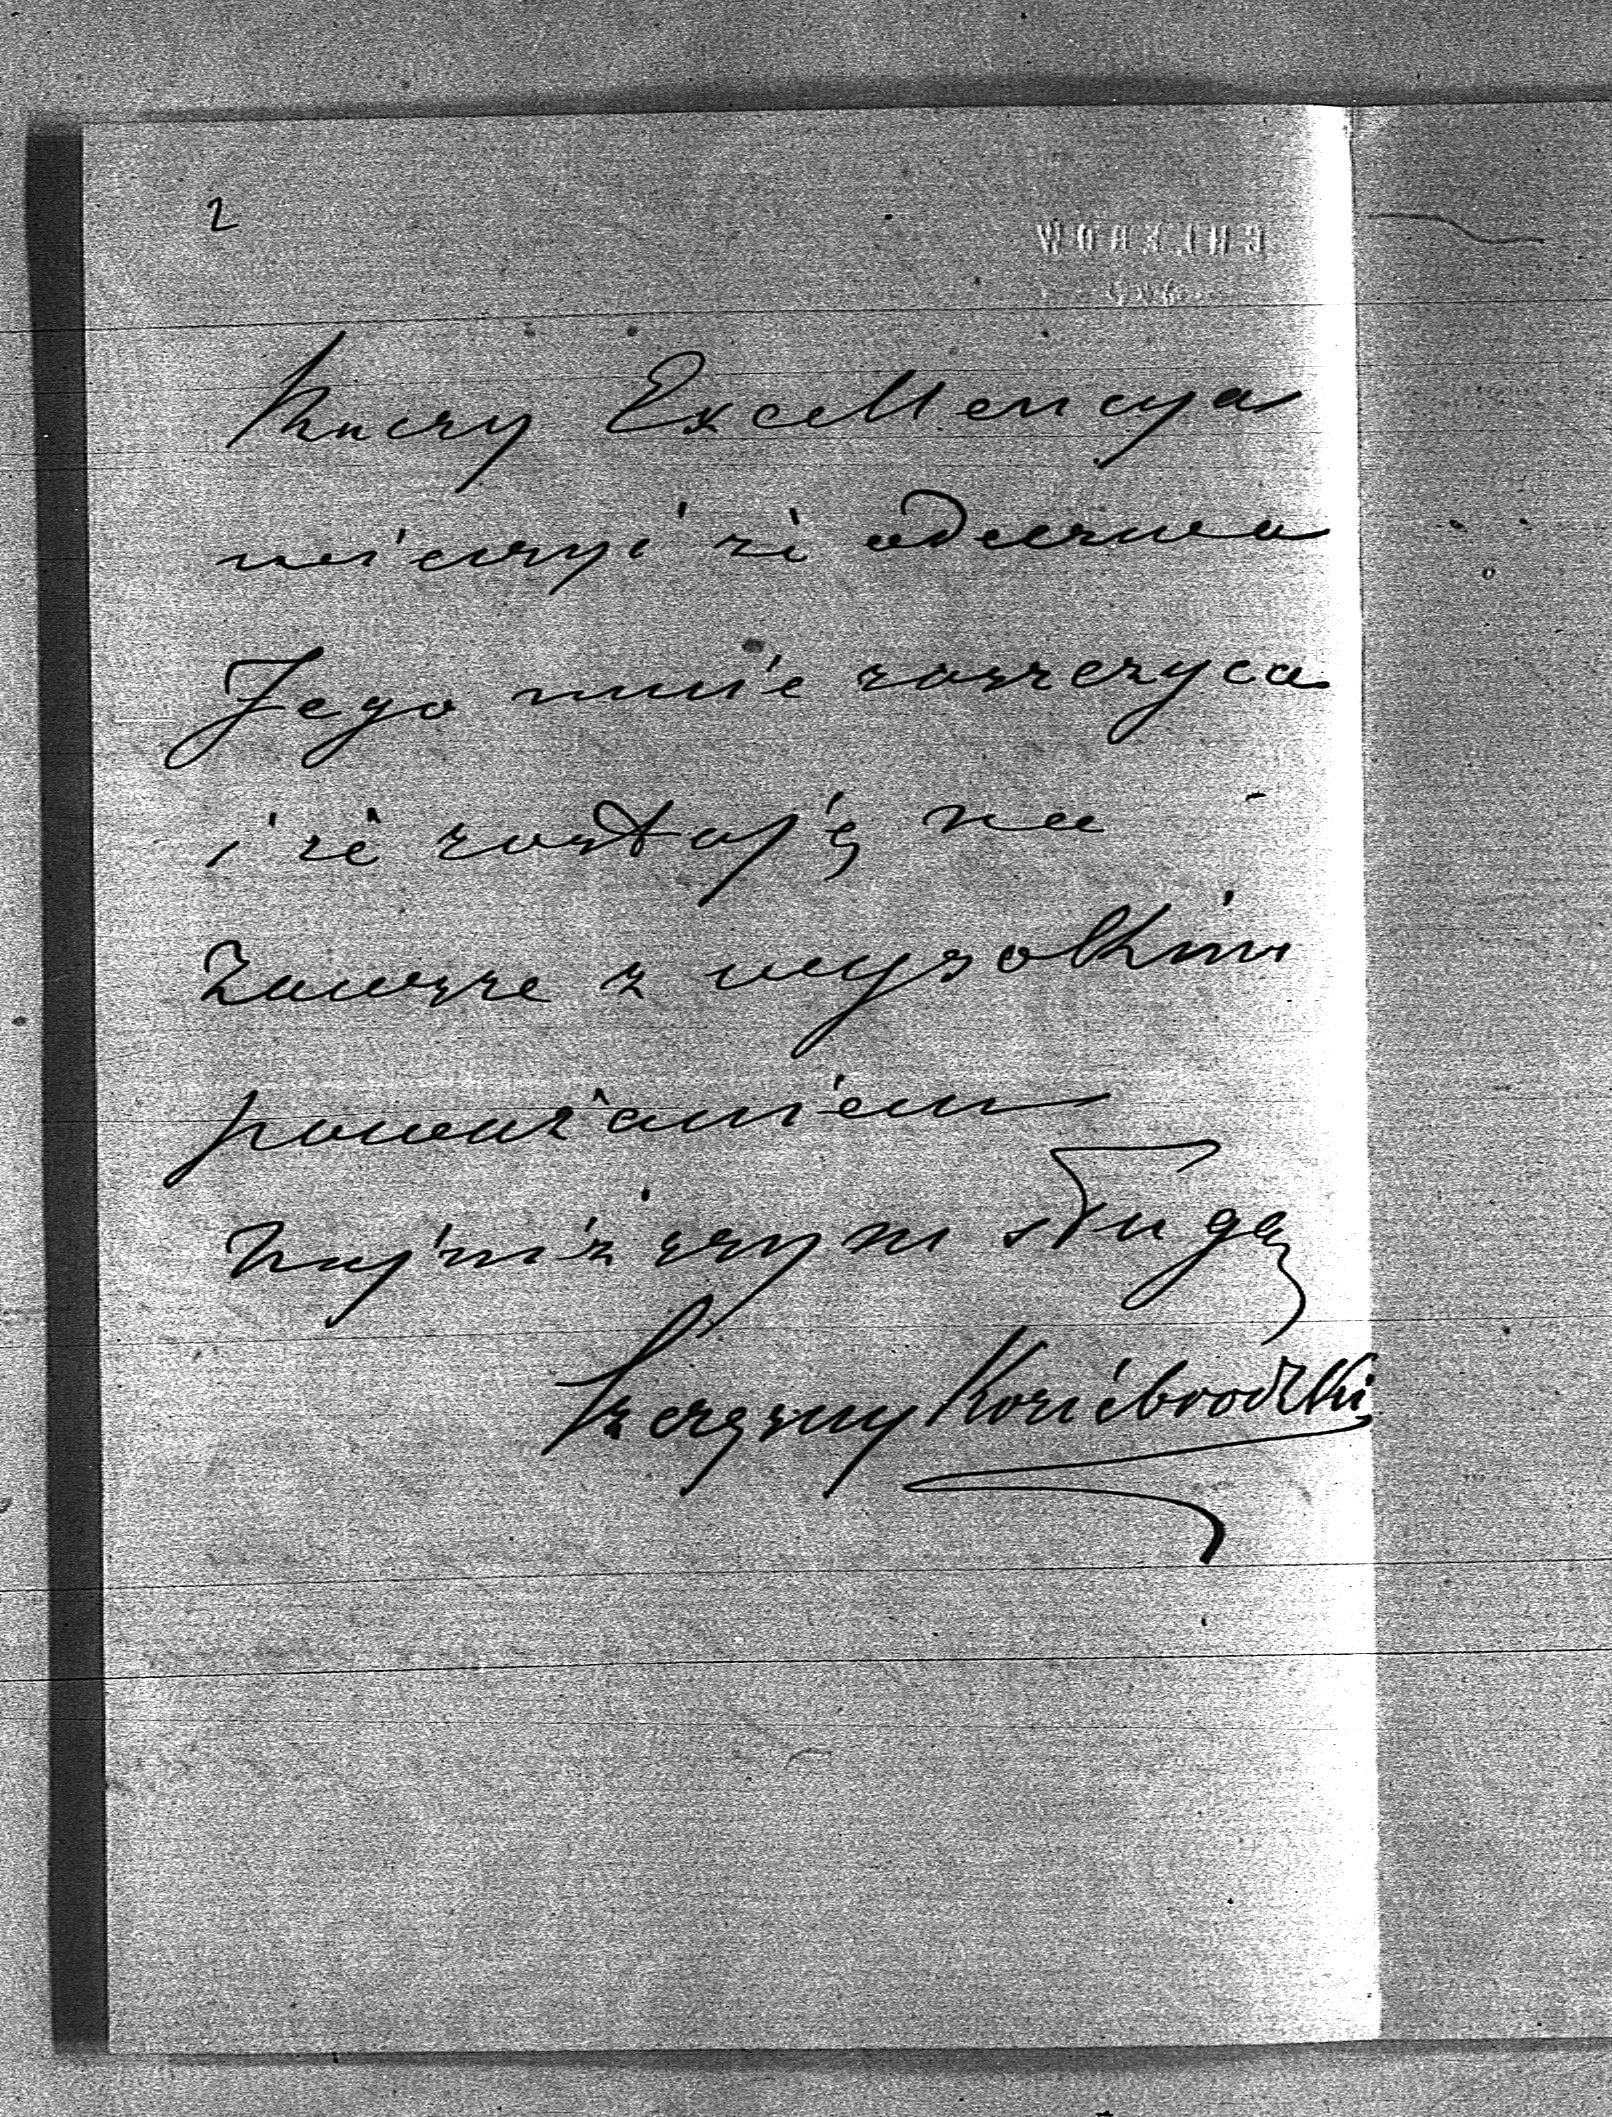 2
Raczy Excellencya
wierzyć że odezwa
Jego mnie zaszczyca
i że zostaję na
zawsze z wysokim
poważaniem
najniższym sługą
Szczęsny Koziebrodzki